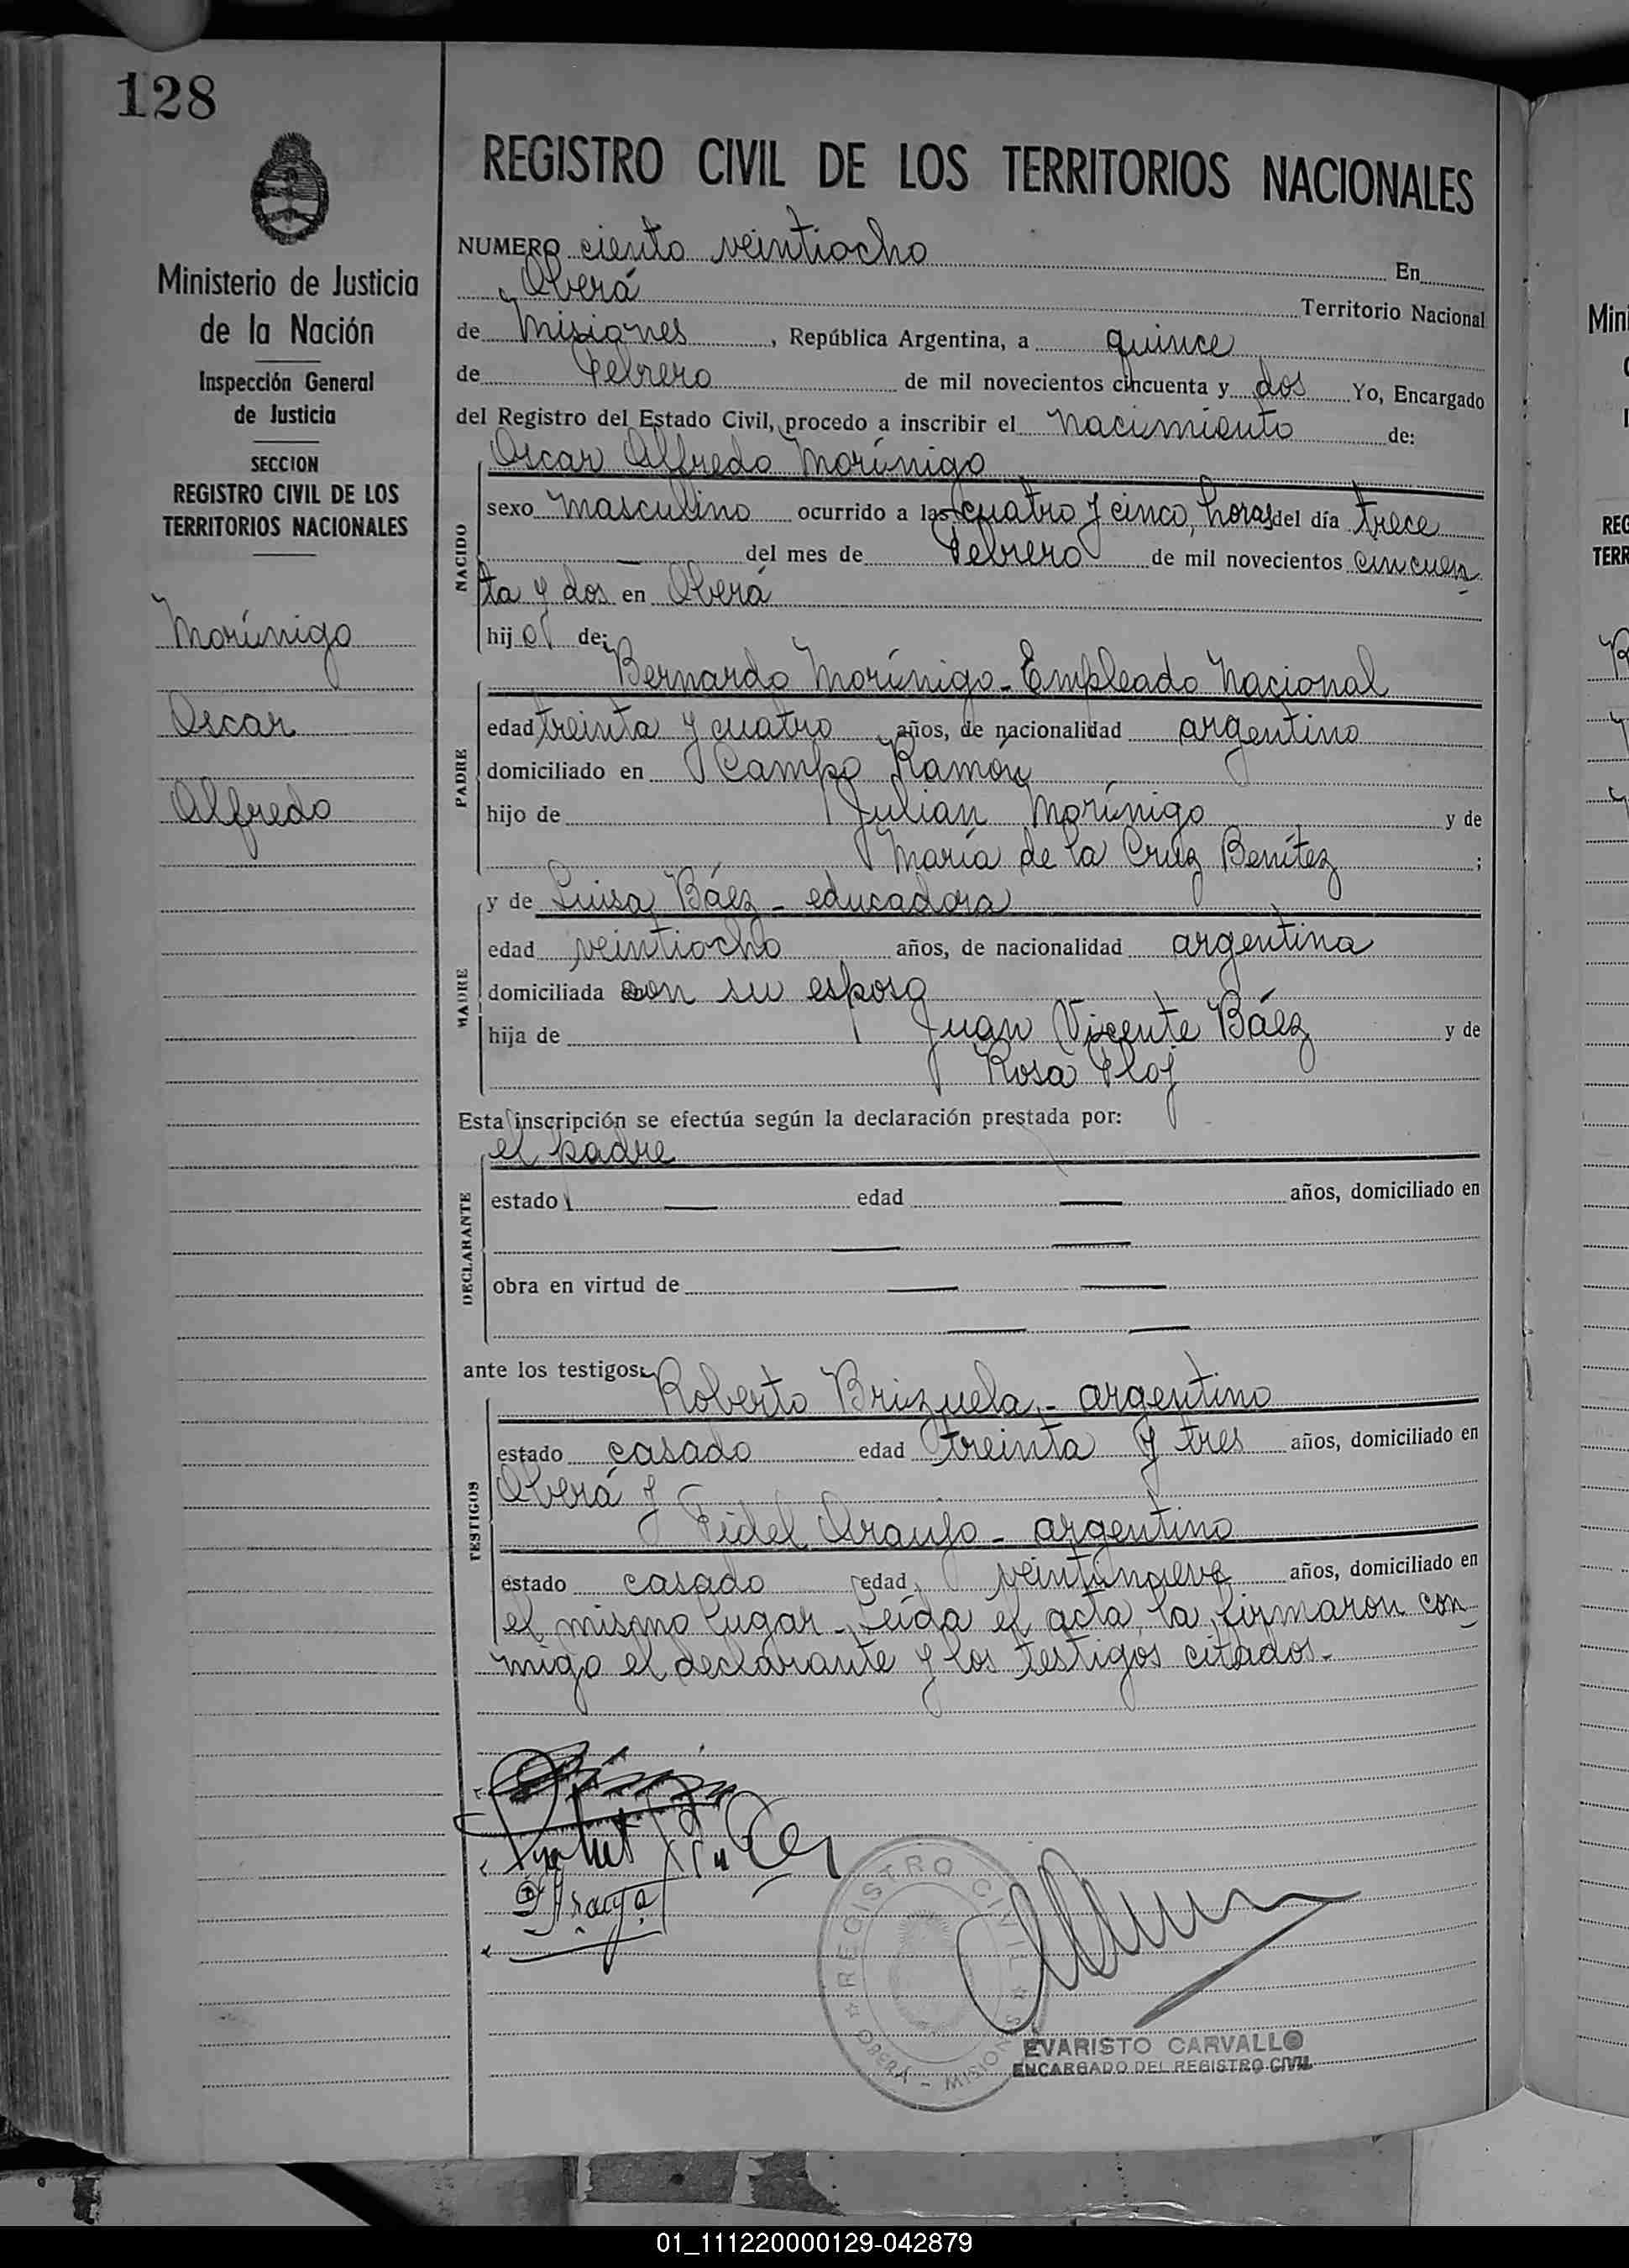 128
Ministerio de Justicia
de la Nación
Inspección General
de Justicia
SECCION
REGISTRO CIVIL DE LOS
TERRITORIOS NACIONALES
Morínigo
Oscar
Alfredo
REGISTRO CIVIL DE LOS TERRITORIOS NACIONALES
NUMERO ciento veintiocho En
Oberá Territorio Nacional
de Misiones, República Argentina, a quince
de Febrero de mil novecientos cincuenta y dos Yo, Encargado
del Registro del Estado Civil, procedo a inscribir el nacimiento de:
Oscar Alfredo Morínigo
NACIDO
sexo masculino ocurrido a las cuatro y cinco, horas del día trece
— del mes de Febrero de mil novecientos cincuen-
ta y dos en Oberá
hijo de:
Bernardo Morínigo - Empleado Nacional
PADRE
edad treinta y cuatro años, de nacionalidad argentino
domiciliado en Campo Ramón
hijo de Julian Morínigo y de
María de la Cruz Benítez ;
y de Luisa Báez - educadora
MADRE
edad veintiocho años, de nacionalidad argentina
domiciliada con su esposo
hija de Juan Vicente Báez y de
Rosa Ploj
Esta inscripción se efectúa según la declaración prestada por:
el padre
DECLARANTE
estado — edad — años, domiciliado en
— —
obra en virtud de — —
— —
ante los testigos:
Roberto Brizuela, - argentino
TESTIGOS
estado casado edad treinta y tres años, domiciliado en
Oberá y
Fidel Araujo - argentino
estado casado edad veintinueve años, domiciliado en
el mismo lugar - Leída el acta, la firmaron con-
migo el declarante y los testigos citados.-
REGISTRO CIVIL
OBERÁ - MISIONES
EVARISTO CARVALLO
ENCARGADO DEL REGISTRO CIVIL
Mini
REG
TERR
01_111220000129-042879